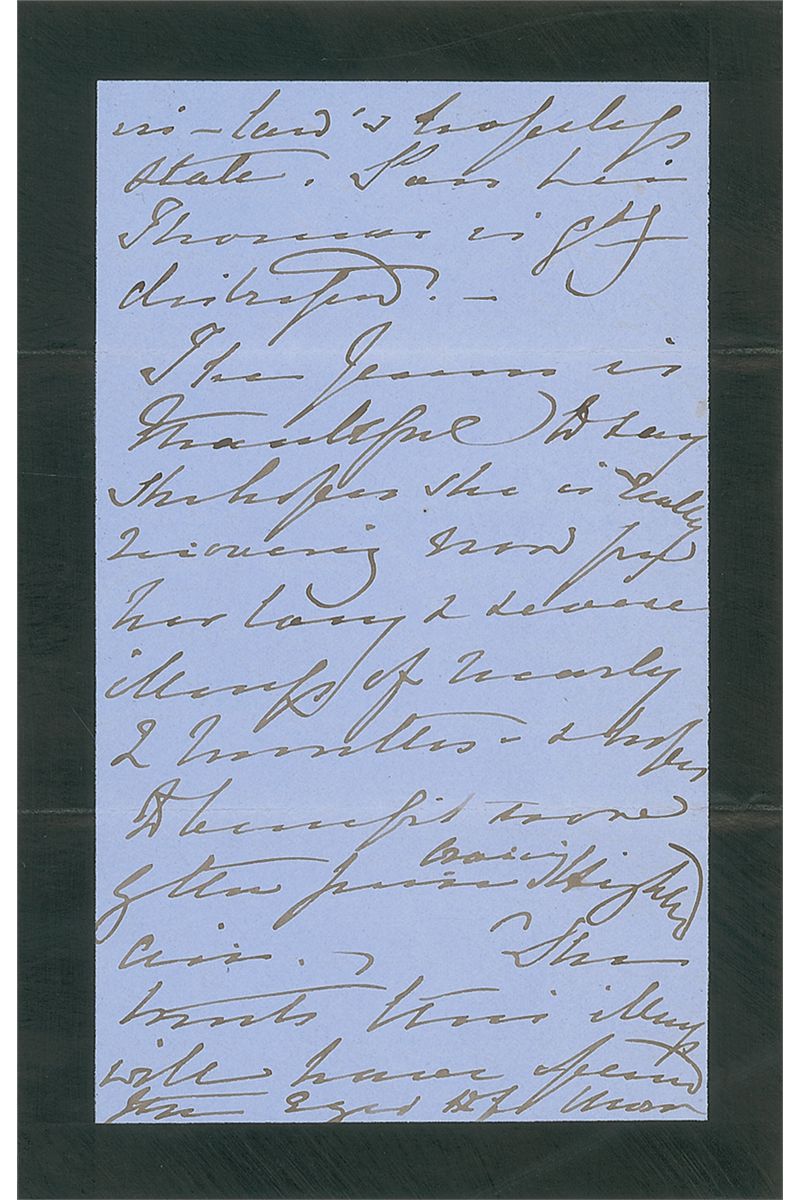 in-law's hopeless
state. Poor
Thomas is gtly
distressed. –
The Queen is
thankful to say
she hopes she is really
recovering now fm
her long & severe
illness of nearly
2 months – & hopes
to benefit more
by the fine bracing Highld
air. – She
trusts this illness
will have opened
the eyes of